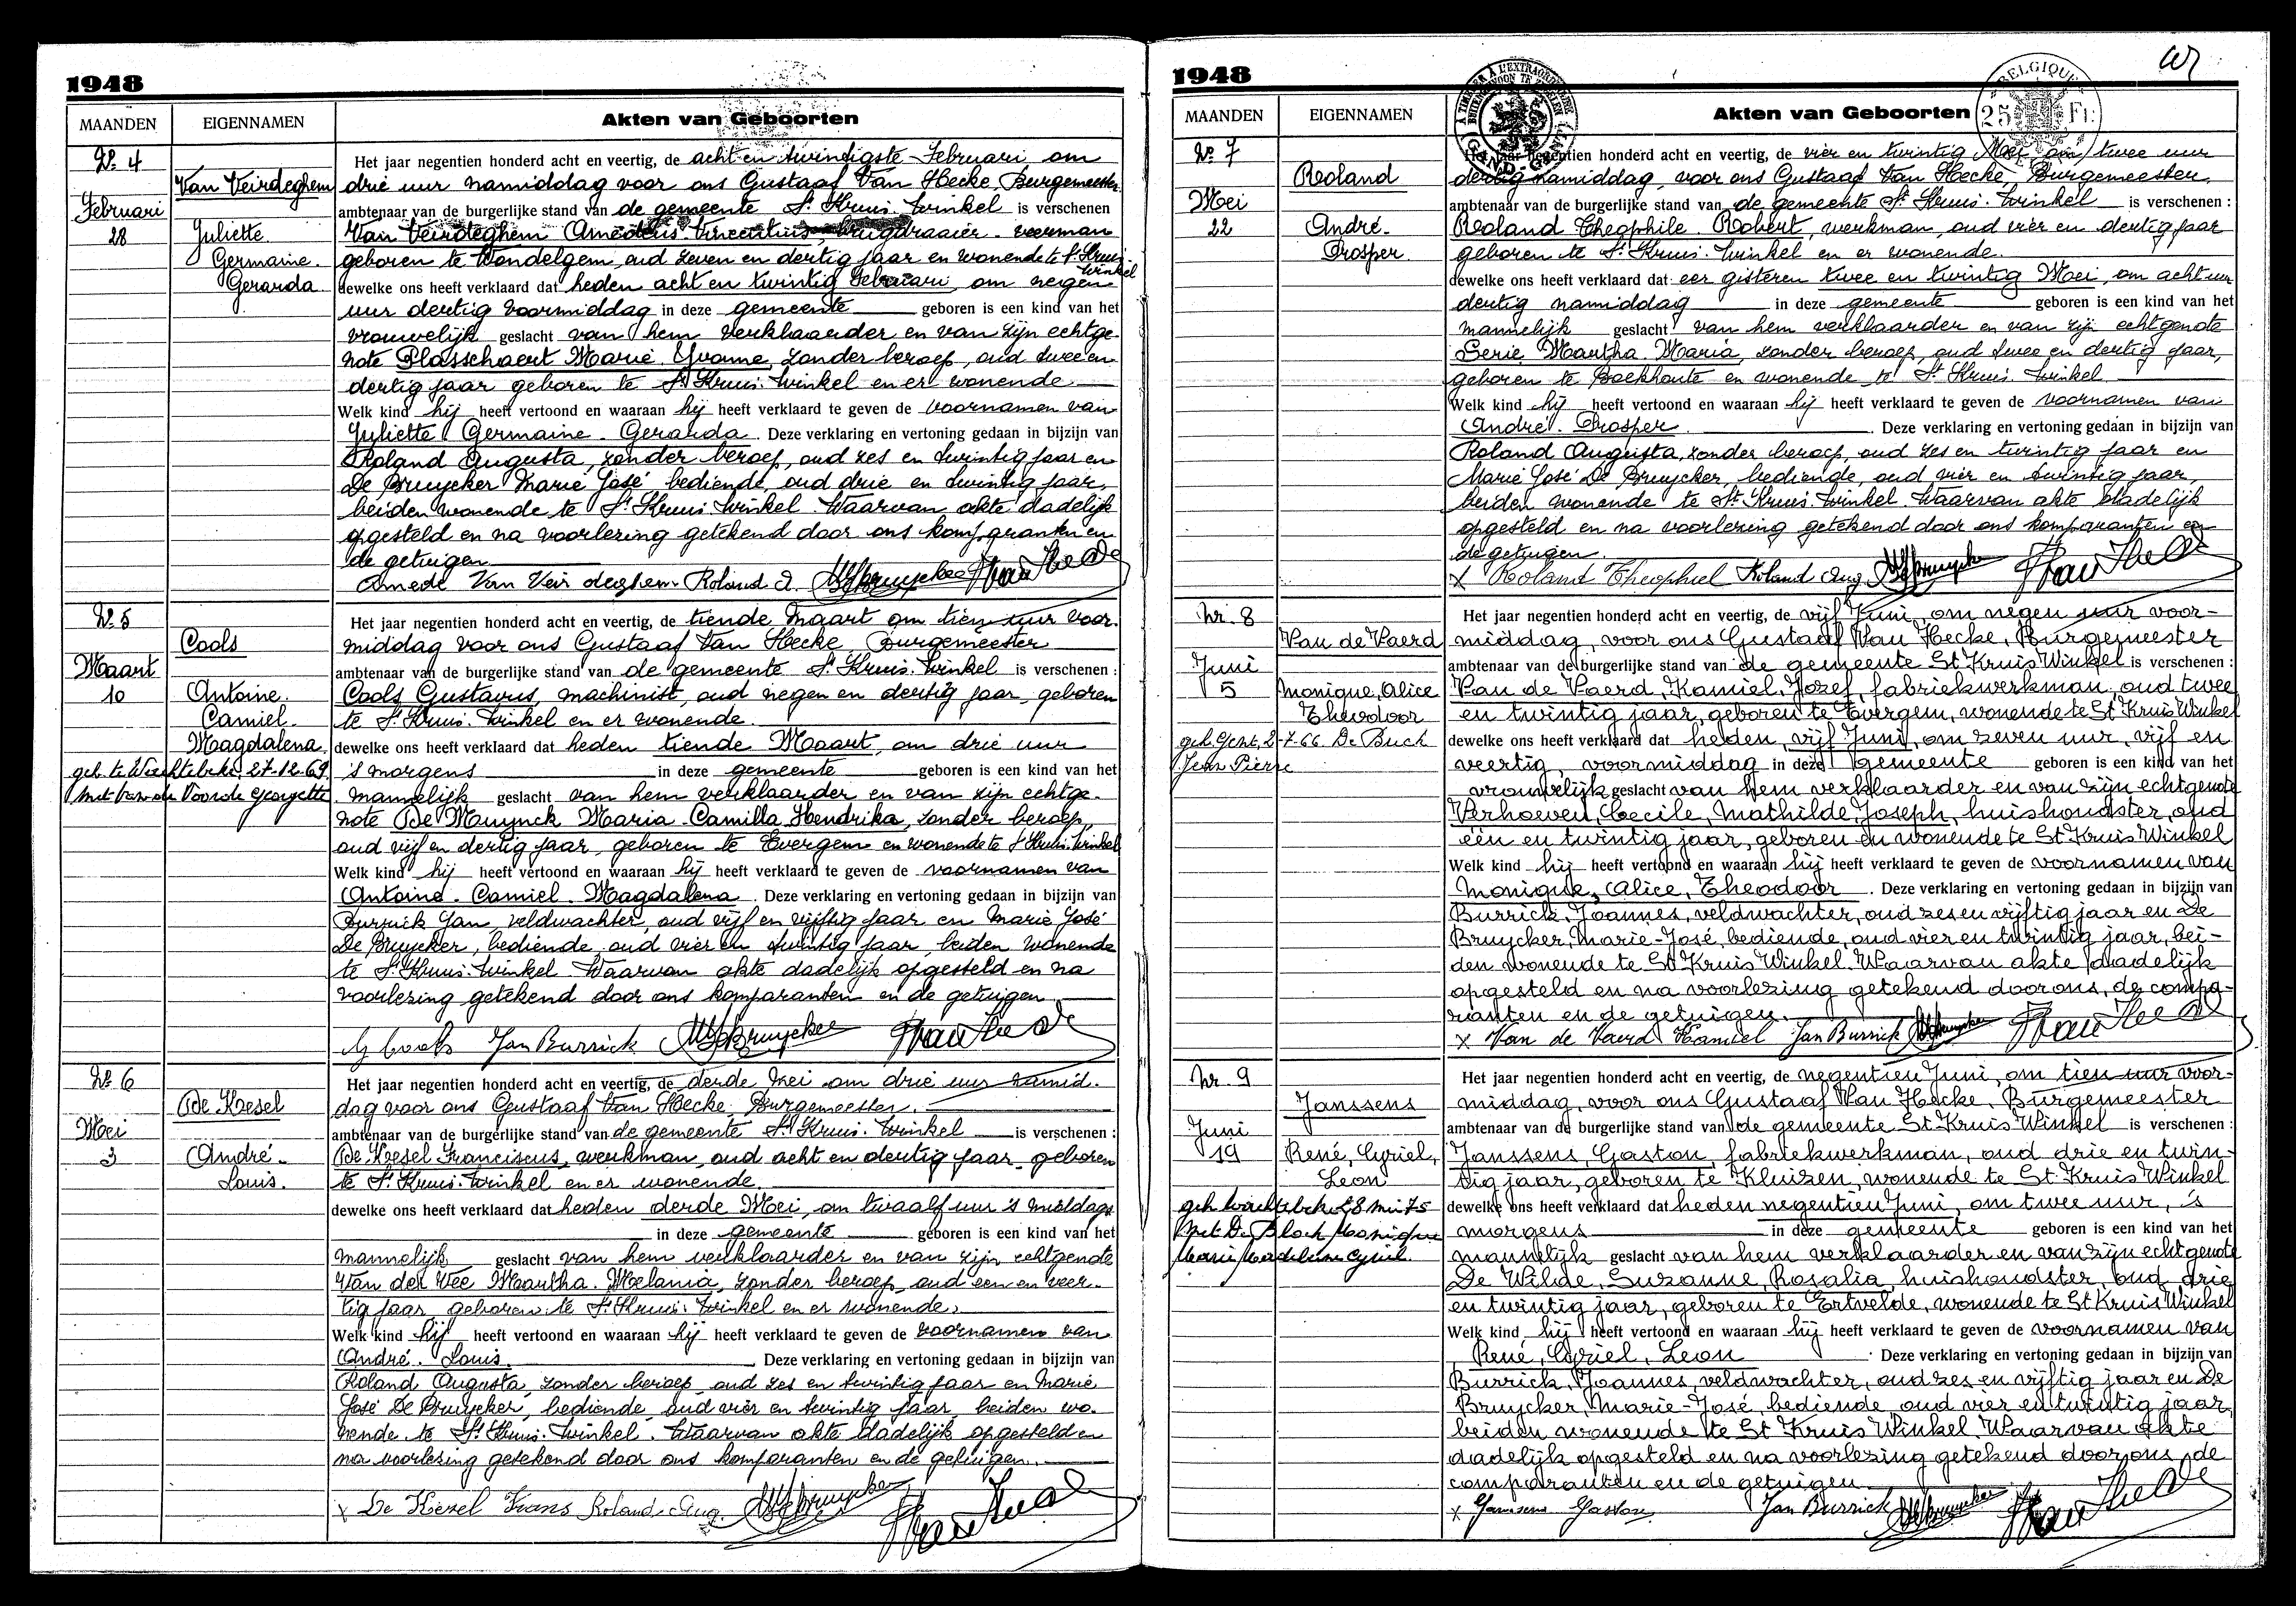 1948
MAANDEN EIGENNAMEN Akten van Geboorten
No 4
Van Veirdeghem
Februari
28
Juliette
Germaine
Gerarda
Het jaar negentien honderd acht en veertig, de acht en twindigste Februari om
drie uur namiddag voor ons Gustaaf Van Hecke, Burgemeester
ambtenaar van de burgerlijke stand van de gemeente St Kruis-Winkel is verschenen
Van Veirdeghem Amedeus Vincentius, brugdraaier - veerman
geboren te Wondelgem, oud zeven en dertig jaar en wonende te St Kruis-
Winkel
dewelke ons heeft verklaard dat heden acht en twintig Februari, om negen
uur dertig voormiddag in deze gemeente geboren is een kind van het
vrouwelijk geslacht van hem verklaarder en van zijn echtge-
note Plasschaert Marie Yvonne, zonder beroep, oud twee en
dertig jaar geboren te St Kruis-Winkel en er wonende
Welk kind hij heeft vertoond en waaraan hij heeft verklaard te geven de voornamen van
Juliette Germaine Gerarda. Deze verklaring en vertoning gedaan in bijzijn van
Roland Augusta, zonder beroep, oud zes en twintig jaar en
De Bruycker Marie José bediende, oud drie en twintig jaar,
beiden wonende te St Kruis-Winkel. Waarvan akte dadelijk
opgesteld en na voorlezing getekend door ons komparanten en
de getuigen
Amede Van Veirdeghem Roland A. MJDebruycker
No 5
Cools
Maart
10
Antoine
Camiel
Magdalena
geh. te Wachtebeke, 27-12-69
met Van de Voorde Georgette
Het jaar negentien honderd acht en veertig, de tiende Maart om tien uur voor-
middag voor ons Gustaaf Van Hecke, Burgemeester
ambtenaar van de burgerlijke stand van de gemeente St Kruis-Winkel is verschenen :
Cools Gustavus, machinist, oud negen en dertig jaar, geboren
te St Kruis-Winkel en er wonende
dewelke ons heeft verklaard dat heden tiende Maart, om drie uur
's morgens in deze gemeente geboren is een kind van het
mannelijk geslacht van hem verklaarder en van zijn echtge-
note De Muynck Maria Camilla Hendrika, zonder beroep,
oud vijf en dertig jaar, geboren te Evergem en wonende te St Kruis-Winkel
Welk kind hij heeft vertoond en waaraan hij heeft verklaard te geven de voornamen van
Antoine Camiel Magdalena. Deze verklaring en vertoning gedaan in bijzijn van
Burrick Jan, veldwachter, oud vijf en vijftig jaar en Marie José
De Bruycker, bediende, oud vier en twintig jaar, beiden wonende
te St Kruis-Winkel. Waarvan akte dadelijk opgesteld en na
voorlezing getekend door ons komparanten en de getuigen
G Cools Jan Burrick MJDebruycker
No 6
De Kesel
Mei
3
André
Louis
Het jaar negentien honderd acht en veertig, de derde Mei om drie uur namid-
dag voor ons Gustaaf Van Hecke, Burgemeester
ambtenaar van de burgerlijke stand van de gemeente St Kruis-Winkel is verschenen :
De Kesel Franciscus, werkman, oud acht en dertig jaar, geboren
te St Kruis-Winkel en er wonende
dewelke ons heeft verklaard dat heden derde Mei, om twaalf uur 's middags
in deze gemeente geboren is een kind van het
mannelijk geslacht van hem verklaarder en van zijn echtgenote
Van der Vee Maartha Melania, zonder beroep, oud een en veer-
tig jaar, geboren te St Kruis-Winkel en er wonende.
Welk kind hij heeft vertoond en waaraan hij heeft verklaard te geven de voornamen van
André Louis. Deze verklaring en vertoning gedaan in bijzijn van
Roland Augusta, zonder beroep, oud zes en twintig jaar en Marie
José De Bruycker, bediende, oud vier en twintig jaar, beiden wo-
nende te St Kruis-Winkel. Waarvan akte dadelijk opgesteld en
na voorlezing getekend door ons komparanten en de getuigen
x De Kesel Frans Roland Aug. MJDebruycker
1948
BELGIQUE
25 Fr
MAANDEN EIGENNAMEN Akten van Geboorten
No 7
Roland
Mei
22
André
Prosper
Het jaar negentien honderd acht en veertig, de vier en twintig Mei om twee uur
dertig namiddag, voor ons Gustaaf Van Hecke Burgemeester
ambtenaar van de burgerlijke stand van de gemeente St Kruis-Winkel is verschenen :
Roland Theophile Robert, werkman, oud vier en dertig jaar
geboren te St Kruis-Winkel en er wonende
dewelke ons heeft verklaard dat eer gisteren twee en twintig Mei, om acht uur
dertig namiddag in deze gemeente geboren is een kind van het
mannelijk geslacht van hem verklaarder en van zijn echtgenote
Serie Martha Maria, zonder beroep, oud twee en dertig jaar,
geboren te Boekhoute en wonende te St Kruis-Winkel
Welk kind hij heeft vertoond en waaraan hij heeft verklaard te geven de voornamen van
André Prosper. Deze verklaring en vertoning gedaan in bijzijn van
Roland Augusta, zonder beroep, oud zes en twintig jaar en
Marie José De Bruycker, bediende, oud vier en twintig jaar,
beiden wonende te St Kruis-Winkel. Waarvan akte dadelijk
opgesteld en na voorlezing getekend door ons komparanten en
de getuigen.
x Roland Theophiel Roland Aug MJDebruycker
Nr. 8
Van de Vaerd
Juni
5
Monique, Alice
Theodoor
geh. Gent, 2-7-66 De Buck
Jean Pierre
Het jaar negentien honderd acht en veertig, de vijf Juni, om negen uur voor-
middag, voor ons Gustaaf Van Hecke, Burgemeester
ambtenaar van de burgerlijke stand van de gemeente St Kruis Winkel is verschenen :
Van de Vaerd, Kamiel, Jozef, fabriekwerkman, oud twee
en twintig jaar, geboren te Evergem, wonende te St Kruis Winkel
dewelke ons heeft verklaard dat heden, vijf Juni, om zeven uur, vijf en
veertig, voormiddag in deze gemeente geboren is een kind van het
vrouwelijk geslacht van hem verklaarder en van zijn echtgenote
Verhoeven, Cecile, Mathilde, Joseph, huishoudster, oud
één en twintig jaar, geboren en wonende te St Kruis Winkel
Welk kind hij heeft vertoond en waaraan hij heeft verklaard te geven de voornamen van
Monique, Alice, Theodoor. Deze verklaring en vertoning gedaan in bijzijn van
Burrick, Joannes, veldwachter, oud zes en vijftig jaar en De
Bruycker, Marie-José, bediende, oud vier en twintig jaar, bei-
den wonende te St Kruis Winkel. Waarvan akte dadelijk
opgesteld en na voorlezing getekend door ons, de compa-
ranten en de getuigen.
x Van de Vaerd Kamiel Jan Burrick MJDebruycker
Nr. 9
Janssens
Juni
19
René, Cyriel,
Leon
geh. Wachtebeke 28 mei 75
met De Block Monique
Marie Madeleine Cyriel
Het jaar negentien honderd acht en veertig, de negentien Juni, om tien uur voor-
middag, voor ons Gustaaf Van Hecke, Burgemeester
ambtenaar van de burgerlijke stand van de gemeente St Kruis Winkel is verschenen :
Janssens, Gaston, fabriekwerkman, oud drie en twin-
tig jaar, geboren te Kluizen, wonende te St Kruis Winkel
dewelke ons heeft verklaard dat heden negentien Juni, om twee uur, 's
morgens in deze gemeente geboren is een kind van het
mannelijk geslacht van hem verklaarder en van zijn echtgenote
De Wilde, Suzanne, Rosalia, huishoudster, oud drie
en twintig jaar, geboren te Ertvelde, wonende te St Kruis Winkel
Welk kind hij heeft vertoond en waaraan hij heeft verklaard te geven de voornamen van
René, Cyriel, Leon. Deze verklaring en vertoning gedaan in bijzijn van
Burrick, Joannes, veldwachter, oud zes en vijftig jaar en De
Bruycker, Marie-José, bediende, oud vier en twintig jaar,
beiden wonende te St Kruis Winkel. Waarvan akte
dadelijk opgesteld en na voorlezing getekend door ons, de
comparanten en de getuigen
x Janssens Gaston Jan Burrick MJDebruycker